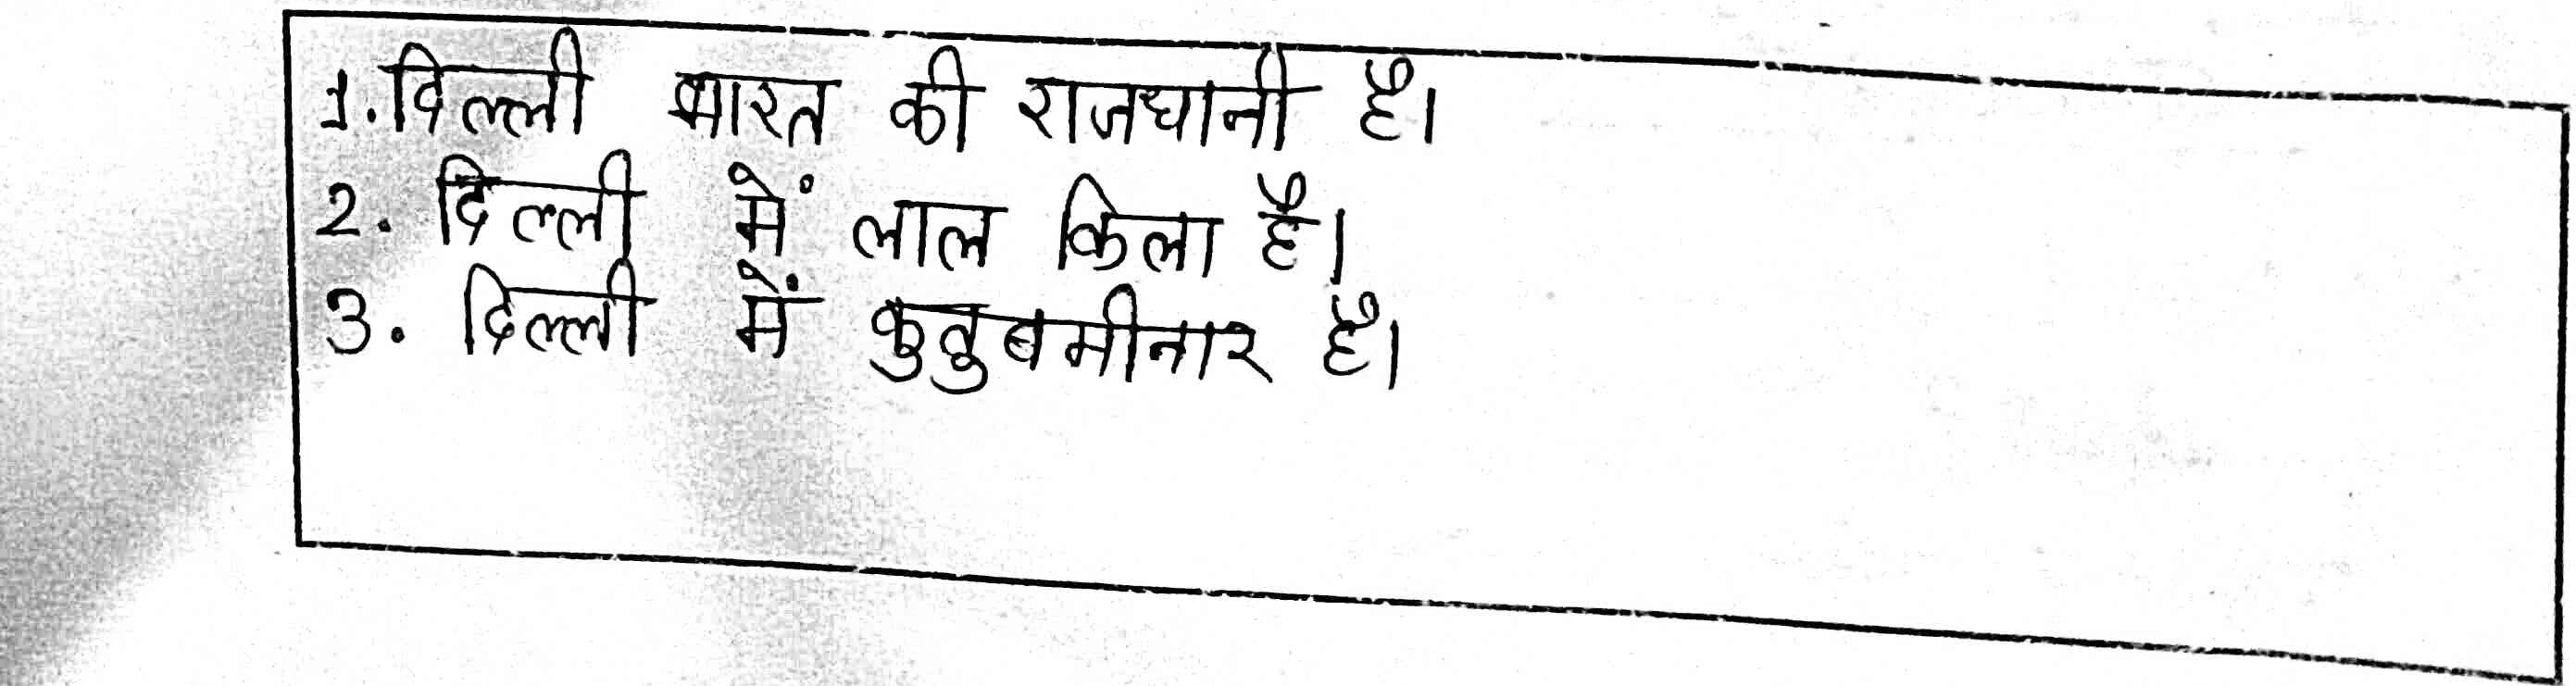 1. दिल्ली भारत की राजधानी है।
2. दिल्ली में लाल किला है।
3. दिल्ली में कुतुबमीनार है।